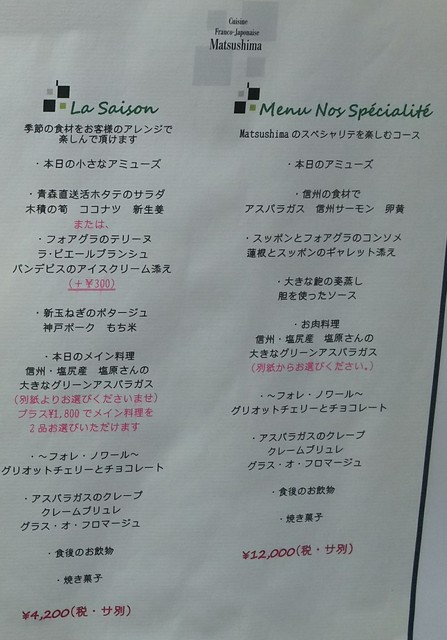 Cuisine
Franco-Japonaise
Matsushima
La Saison
季節の食材をお客様のアレンジで
楽しんで頂けます
・本日の小さなアミューズ
・青森直送活ホタテのサラダ
木積の筍　ココナツ　新生姜
または、
・フォアグラのテリーヌ
ラ・ピエールブランシュ
パンデピスのアイスクリーム添え
(＋¥300)
・新玉ねぎのポタージュ
神戸ポーク　もち米
・本日のメイン料理
信州・塩尻産　塩原さんの
大きなグリーンアスパラガス
(別紙よりお選びくださいませ)
プラス¥1,800でメイン料理を
2品お選びいただけます
・～フォレ・ノワール～
グリオットチェリーとチョコレート
・アスパラガスのクレープ
クレームブリュレ
グラス・オ・フロマージュ
・食後のお飲物
・焼き菓子
¥4,200(税・サ別)
Menu Nos Spécialité
Matsushimaのスペシャリテを楽しむコース
・本日のアミューズ
・信州の食材で
アスパラガス　信州サーモン　卵黄
・スッポンとフォアグラのコンソメ
蓮根とスッポンのギャレット添え
・大きな鮑の姿蒸し
胆を使ったソース
・お肉料理
信州・塩尻産　塩原さんの
大きなグリーンアスパラガス
(別紙からお選びください。)
・～フォレ・ノワール～
グリオットチェリーとチョコレート
・アスパラガスのクレープ
クレームブリュレ
グラス・オ・フロマージュ
・食後のお飲物
・焼き菓子
¥12,000(税・サ別)